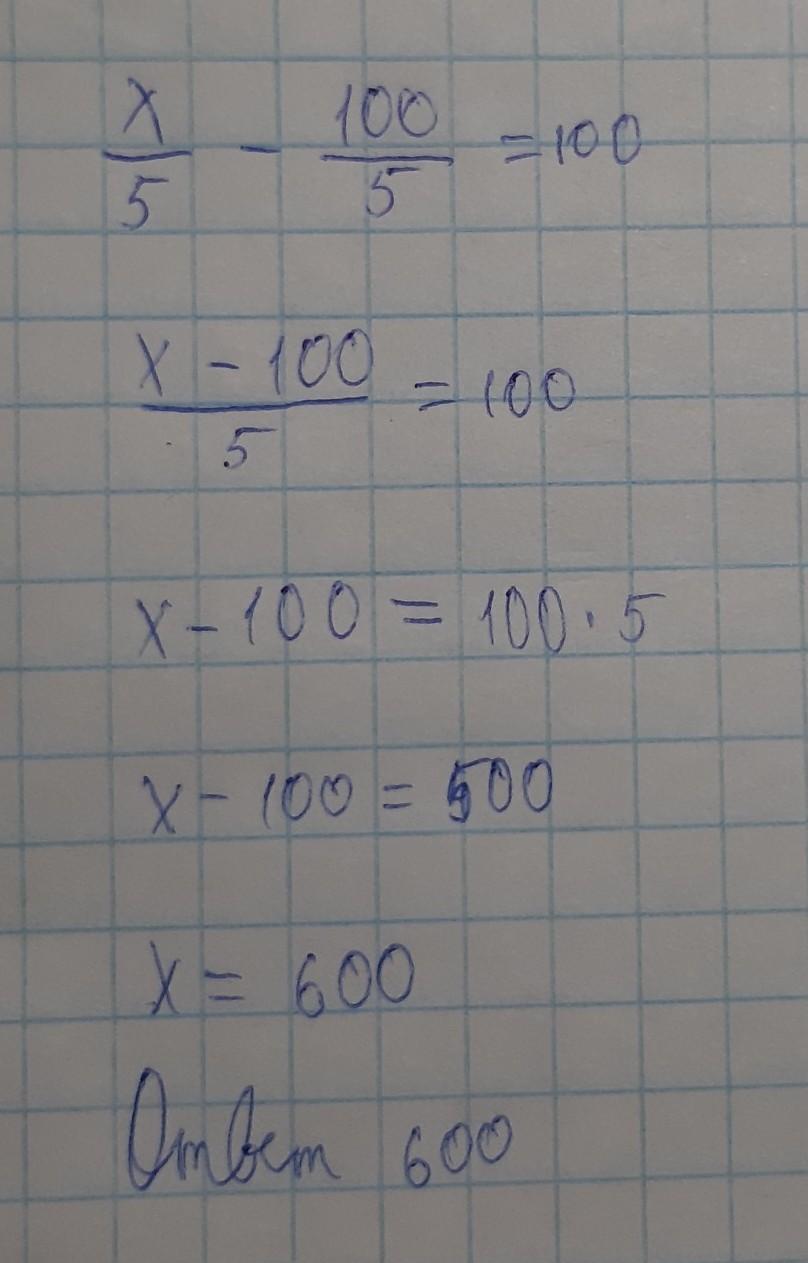 x/5 - 100/5 = 100
(x - 100)/5 = 100
x - 100 = 100 · 5
x - 100 = 500
x = 600
Ответ 600